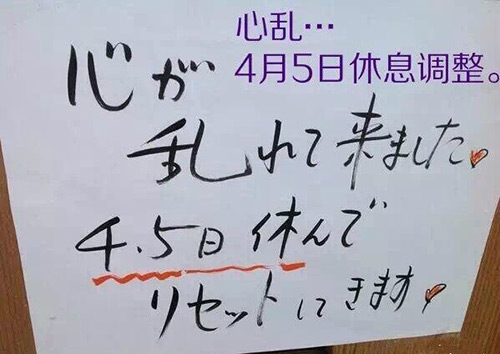 心乱…
4月5日休息调整。
心が
乱れて来ました。
4.5日休んで
リセットにきます